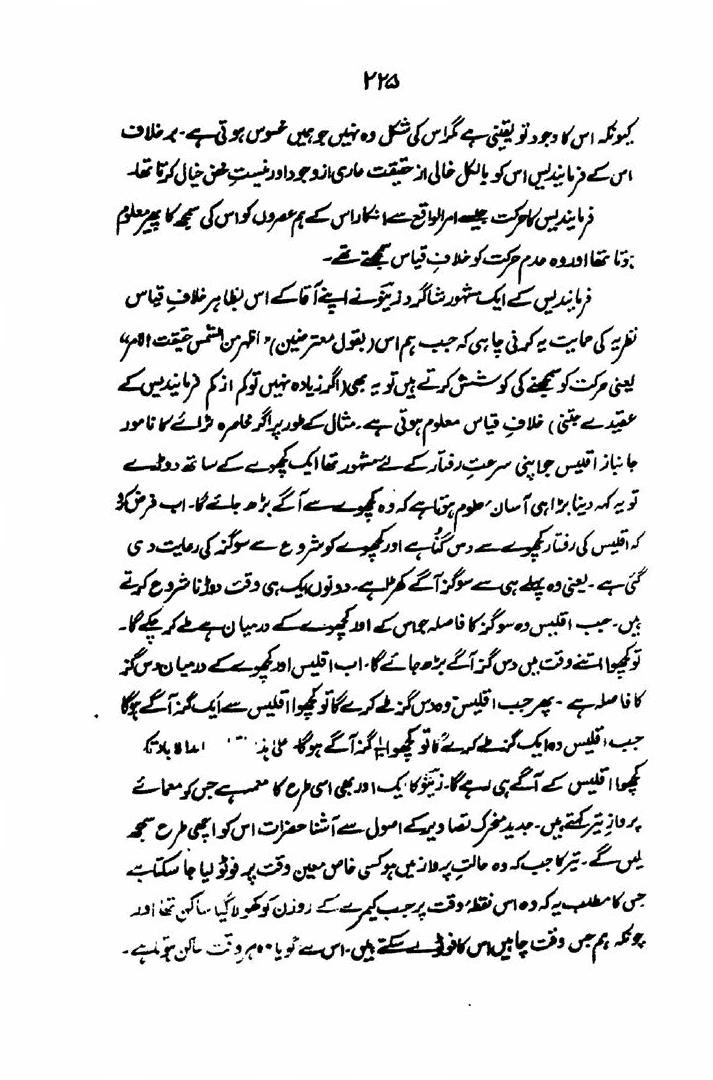 ۲۲۵
کیونکہ اس کا وجود تو یقینی ہے مگر اس کی شکل وہ نہیں جو ہمیں محسوس ہوتی ہے۔ برخلاف
اس کے فرمانیدیس اس کو بالکل خالی از حقیقت عاری از وجود اور نیست محض خیال کرتا تھا۔
فرمانیدیس کا حرکت جیسے امر الواقع سے انکار اس کے ہم عصروں کو اس کی سمجھ کا پھیر معلوم
ہوتا تھا اور وہ عدم حرکت کو خلافِ قیاس سمجھتے تھے۔
فرمانیدیس کے ایک مشہور شاگرد زینو نے اپنے آقا کے اس بظاہر خلافِ قیاس
نظریہ کی حمایت یہ کرنی چاہی کہ جب ہم اس (بقول معترضین) "اظہر من الشمس حقیقت الامر"
یعنی حرکت کو سمجھنے کی کوشش کرتے ہیں تو یہ بھی (اگر زیادہ نہیں تو کم از کم فرمانیدیس کے
عقیدے جتنی) خلافِ قیاس معلوم ہوتی ہے۔ مثال کے طور پر اگر محاصرہ ٹرائے کا نامور
جانباز اقلیس جو اپنی سرعتِ رفتار کے لئے مشہور تھا ایک کچھوے کے ساتھ دوڑے
تو یہ کہہ دینا بڑا ہی آسان معلوم ہوتا ہے کہ وہ کچھوے سے آگے بڑھ جائے گا۔ اب فرض کرو
کہ اقلیس کی رفتار کچھوے سے دس گنا ہے اور کچھوے کو شروع سے سو گز کی رعایت دی
گئی ہے۔ یعنی وہ پہلے ہی سے سو گز آگے کھڑا ہے۔ دونوں ایک ہی وقت دوڑنا شروع کرتے
ہیں۔ جب اقلیس وہ سو گز کا فاصلہ جو اس کے اور کچھوے کے درمیان ہے طے کر چکے گا۔
تو کچھوا اتنے وقت میں دس گز آگے بڑھ جائے گا۔ اب اقلیس اور کچھوے کے درمیان دس گز
کا فاصلہ ہے۔ پھر جب اقلیس وہ دس گز طے کرے گا تو کچھوا اقلیس سے ایک گز آگے ہوگا
جب اقلیس وہ ایک گز طے کرے گا تو کچھوا گز آگے ہوگا۔ علیٰ ہذا
کچھوا اقلیس کے آگے ہی رہے گا۔ زینو کا ایک اور بھی اسی طرح کا معمہ ہے جس کو معمائے
پروازِ تیر کہتے ہیں۔ جدید متحرک تصاویر کے اصول سے آشنا حضرات اس کو اچھی طرح سمجھ
لیں گے۔ تیر کا جب کہ وہ حالتِ پرواز میں ہو کسی خاص معین وقت پر فوٹو لیا جا سکتا ہے
جس کا مطلب یہ کہ وہ اس نقطۂ وقت پر جب کیمرے کے روزن کو کھولا گیا ساکن تھا اور
چونکہ ہم جس وقت چاہیں اس کا فوٹو لے سکتے ہیں۔ اس سے گویا وہ ہر وقت ساکن ہوتا ہے۔